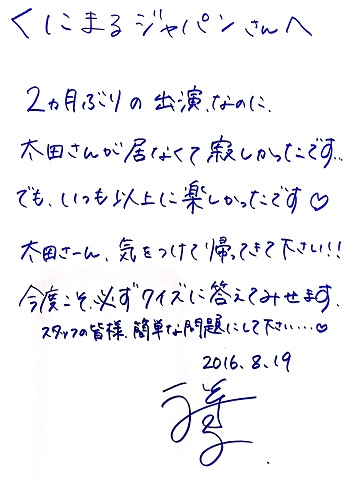 くにまるジャパンさんへ
2ヵ月ぶりの出演、なのに、
太田さんが居なくて寂しかったです…
でも、いつも以上に楽しかったです♡
太田さーん、気をつけて帰ってきて下さい!!
今度こそ、必ずクイズに答えてみせます。
スタッフの皆様、簡単な問題にして下さい……♡
2016.8.19